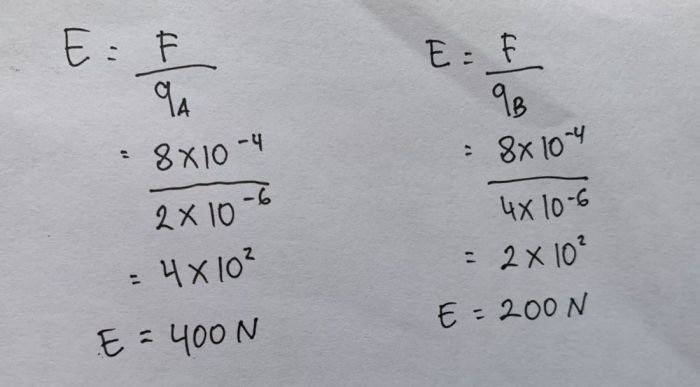 E = F / q_A
= 8×10⁻⁴ / 2×10⁻⁶
= 4×10²
E = 400 N
E = F / q_B
= 8×10⁻⁴ / 4×10⁻⁶
= 2×10²
E = 200 N